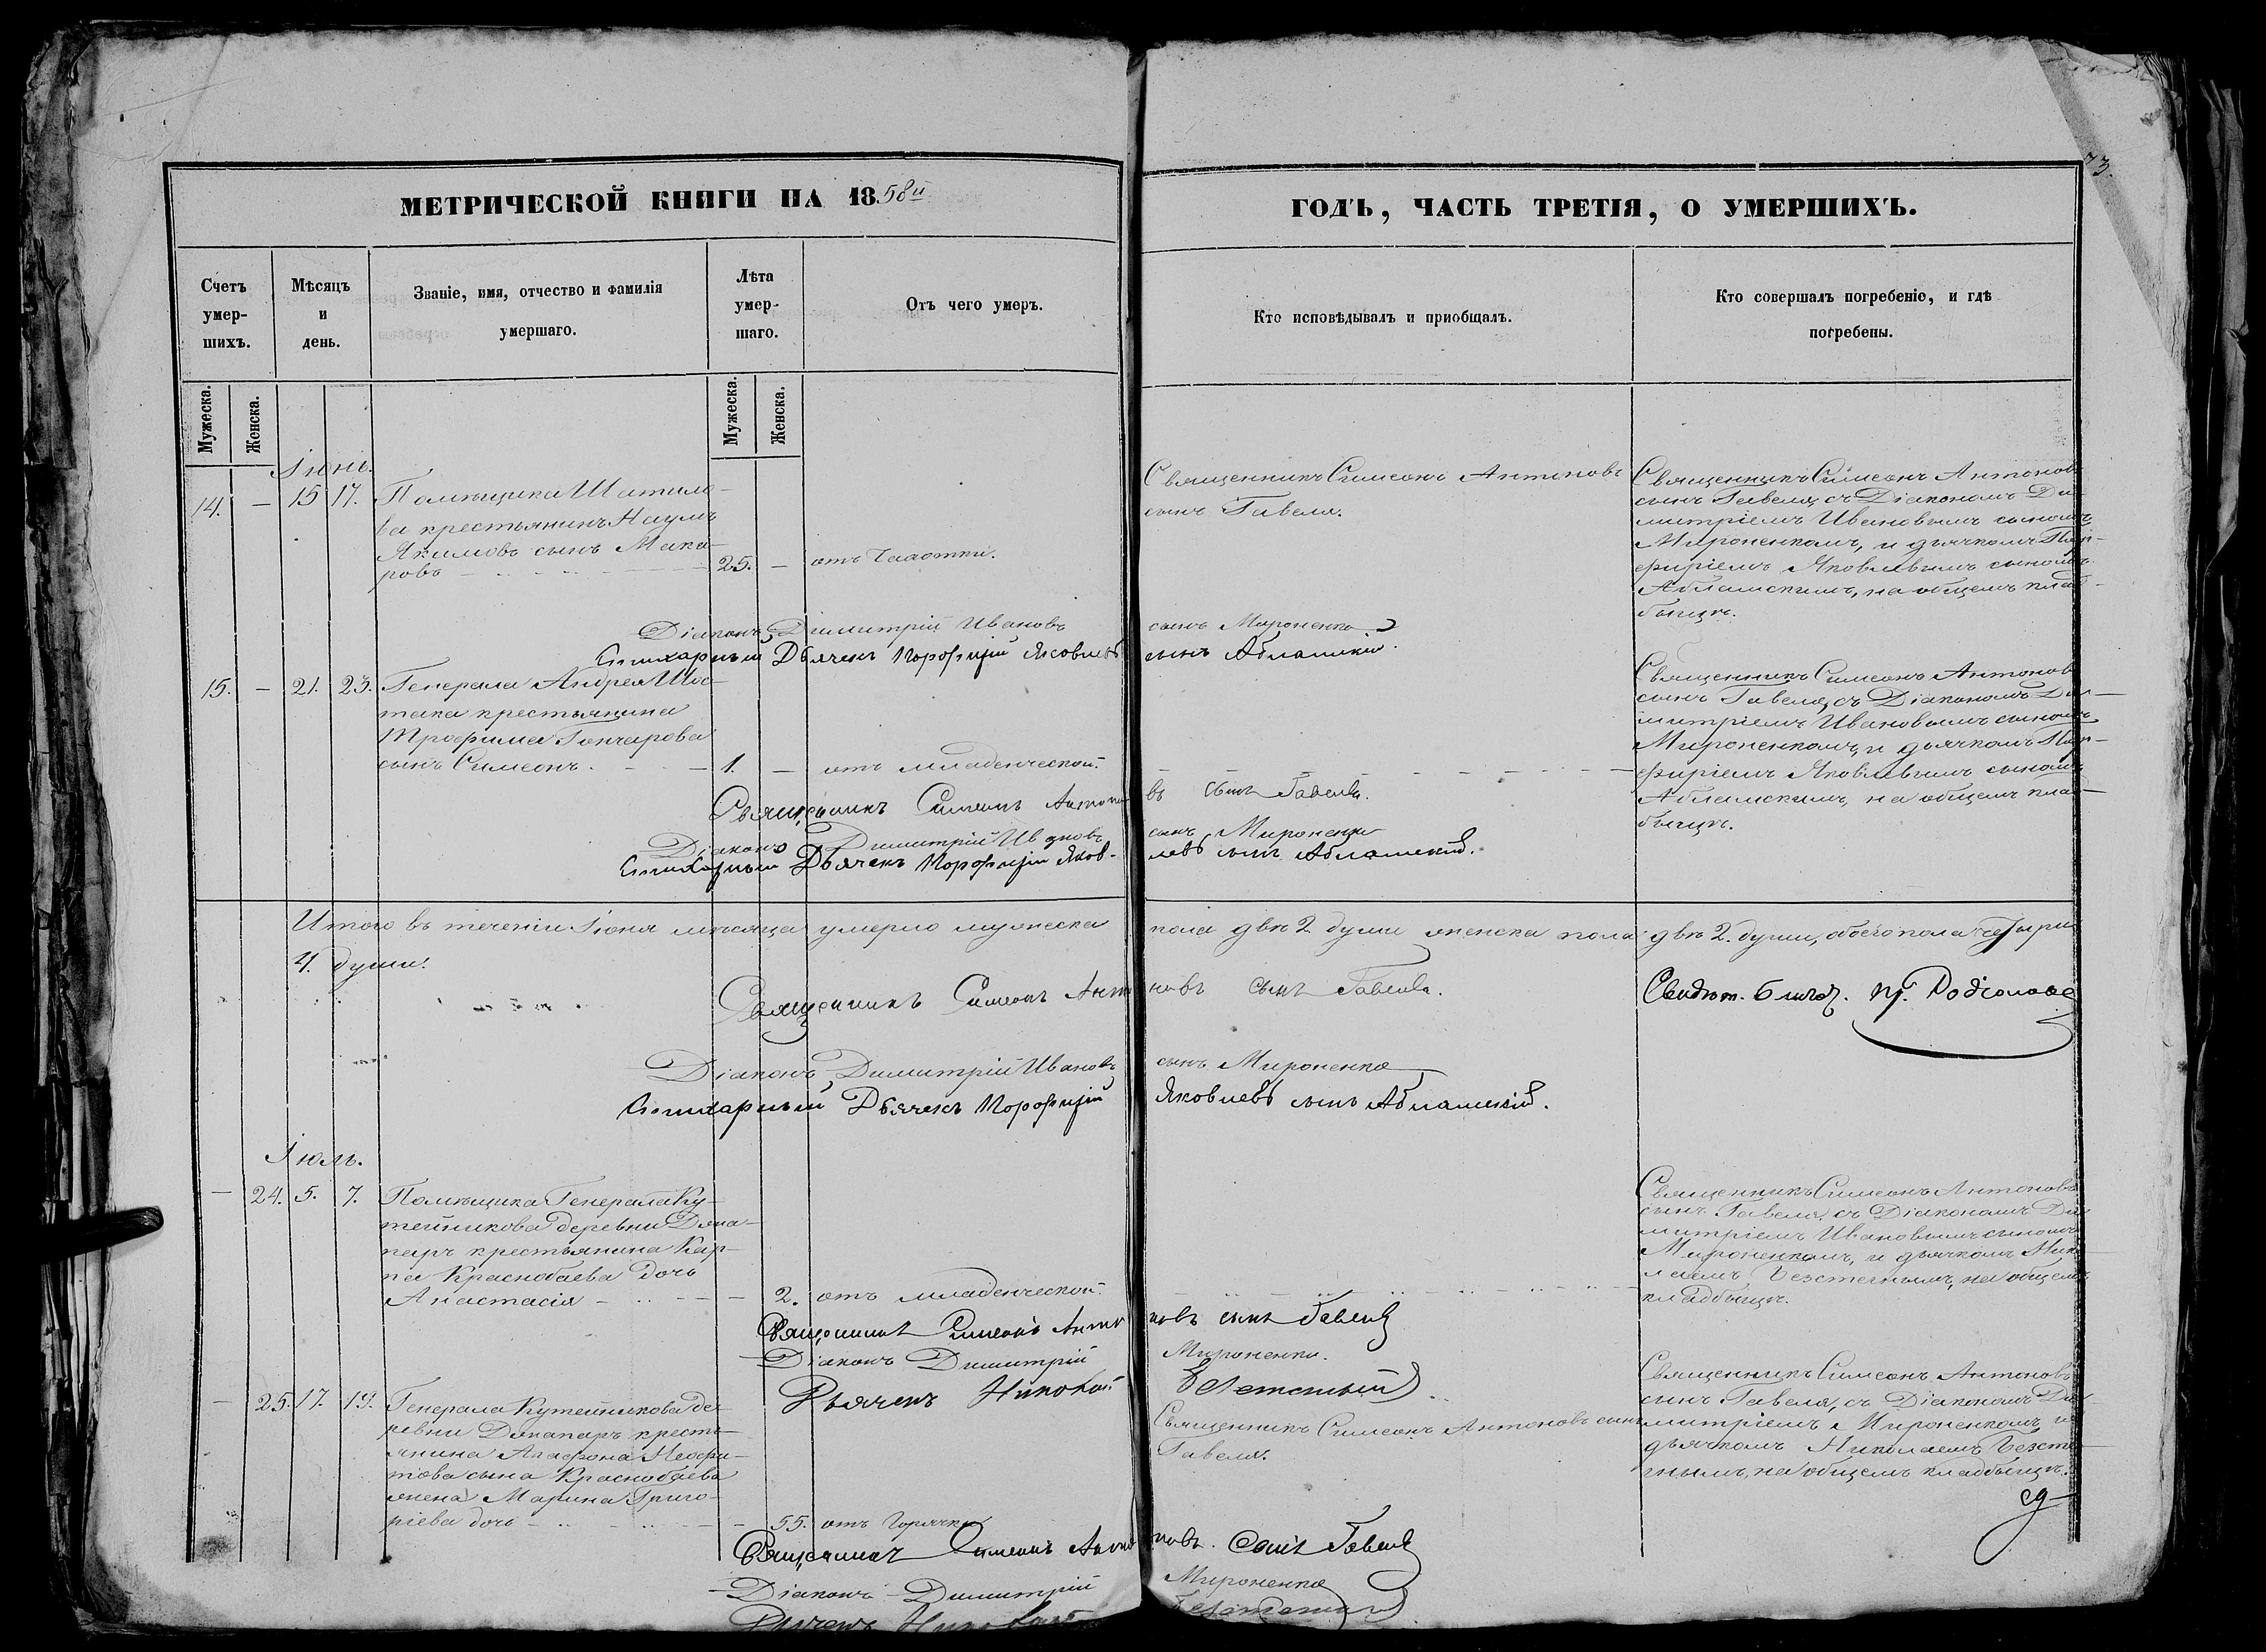 73.
МЕТРИЧЕСКОЙ КНИГИ НА 1858й
ГОДЪ, ЧАСТЬ ТРЕТІЯ, О УМЕРШИХЪ.
Счетъ умер-шихъ.
Мѣсяцъ и день.
Званіе, имя, отчество и фамилія умершаго.
Лѣта умер-шаго.
Отъ чего умеръ.
Кто исповѣдывалъ и приобщалъ.
Кто совершалъ погребеніе, и гдѣ погребены.
Мужеска.
Женска.
Мужеска.
Женска.
Іюнь.
14. — 15 17. Помѣщика Шатило-
ва крестьянинъ Наумъ
Якимовъ сынъ Мака-
ровъ — 25. — отъ Чахотки.
Священникъ Симеонъ Антоновъ
сынъ Гавеля.
Священникъ Симеонъ Антоновъ
сынъ Гавеля, съ Діакономъ Ди-
митріемъ Ивановымъ сыномъ
Мироненкомъ, и дьячкомъ Пор-
фиріемъ Яковлевымъ сыномъ
Абламскимъ, на общемъ клад-
бищѣ.
Діаконъ Димитрій Ивановъ сынъ Мироненко
Стихарный Дьячекъ Порфирій Яковлевъ сынъ Абламскій.
15. — 21. 23. Генерала Андрея Шос-
така крестьянина
Трофима Гончарова
сынъ Симеонъ. — 1. — отъ младенческой.
Священникъ Симеонъ Антоновъ
сынъ Гавеля, съ Діакономъ Ди-
митріемъ Ивановымъ сыномъ
Мироненкомъ, и дьячкомъ Пор-
фиріемъ Яковлевымъ сыномъ
Абламскимъ, на общемъ клад-
бищѣ.
Священникъ Симеонъ Антоновъ сынъ Гавеля.
Діаконъ Димитрій Ивановъ сынъ Мироненко
Стихарный Дьячекъ Порфирій Яковлевъ сынъ Абламскій.
Итого въ теченіи Іюня мѣсяца умерло мужеска пола двѣ 2 души женска пола двѣ 2. души, обоего пола четыри
4. души.
Священникъ Симеонъ Антоновъ сынъ Гавеля.
Свидѣт. Благоч. пр. Родіоновъ
Діаконъ, Димитрій Ивановъ сынъ Мироненко
Стихарный Дьячекъ Порфирій Яковлевъ сынъ Абламскій.
Іюль.
— 24. 5. 7. Помѣщика Генерала Ку-
тейникова деревни Джа-
паръ крестьянина Кар-
па Краснобаева дочь
Анастасія — 2. отъ младенческой.
Священникъ Симеонъ Антоновъ
сынъ Гавеля, съ Діакономъ Ди-
митріемъ Ивановымъ сыномъ
Мироненкомъ, и дьячкомъ Нико-
лаемъ на общемъ
кладбищѣ.
Священникъ Симеонъ Антоновъ сынъ Гавеля
Діаконъ Димитрій Мироненко.
Дьячекъ Николай
— 25. 17. 19. Генерала Кутейникова де-
ревни Джапаръ кресть-
янина Агафона
сына Краснобаева
жена Марина Григо-
ріева дочь — 55. отъ Горячки
Священникъ Симеонъ Антоновъ сынъ
Гавеля.
Священникъ Симеонъ Антоновъ
сынъ Гавеля, съ Діакономъ Ди-
митріемъ Мироненкомъ, и
дьячкомъ Николаемъ
на общемъ кладбищѣ.
Священникъ Симеонъ Антоновъ. сынъ Гавеля
Діаконъ Димитрій Мироненко
Дьячекъ Николай